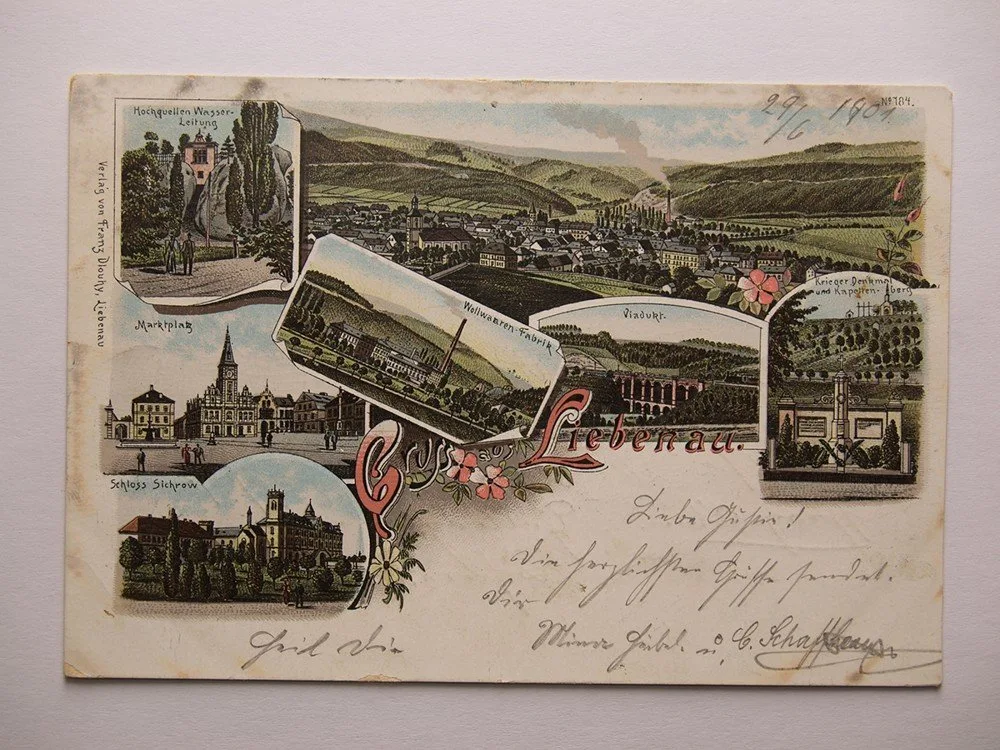 Hochquellen Wasser-
Leitung
No 184.
29/6 1901
Verlag von Franz Dlouhy, Liebenau
Krieger Denkmal
und Kapellen-Berg
Wollwaaren-Fabrik
Viadukt.
Marktplatz
Gruss aus Liebenau.
Schloss Sichrow
Liebe Gustie!
Die herzlichsten Grüße sendet
Dir
Mina u. C.
Heil Dir